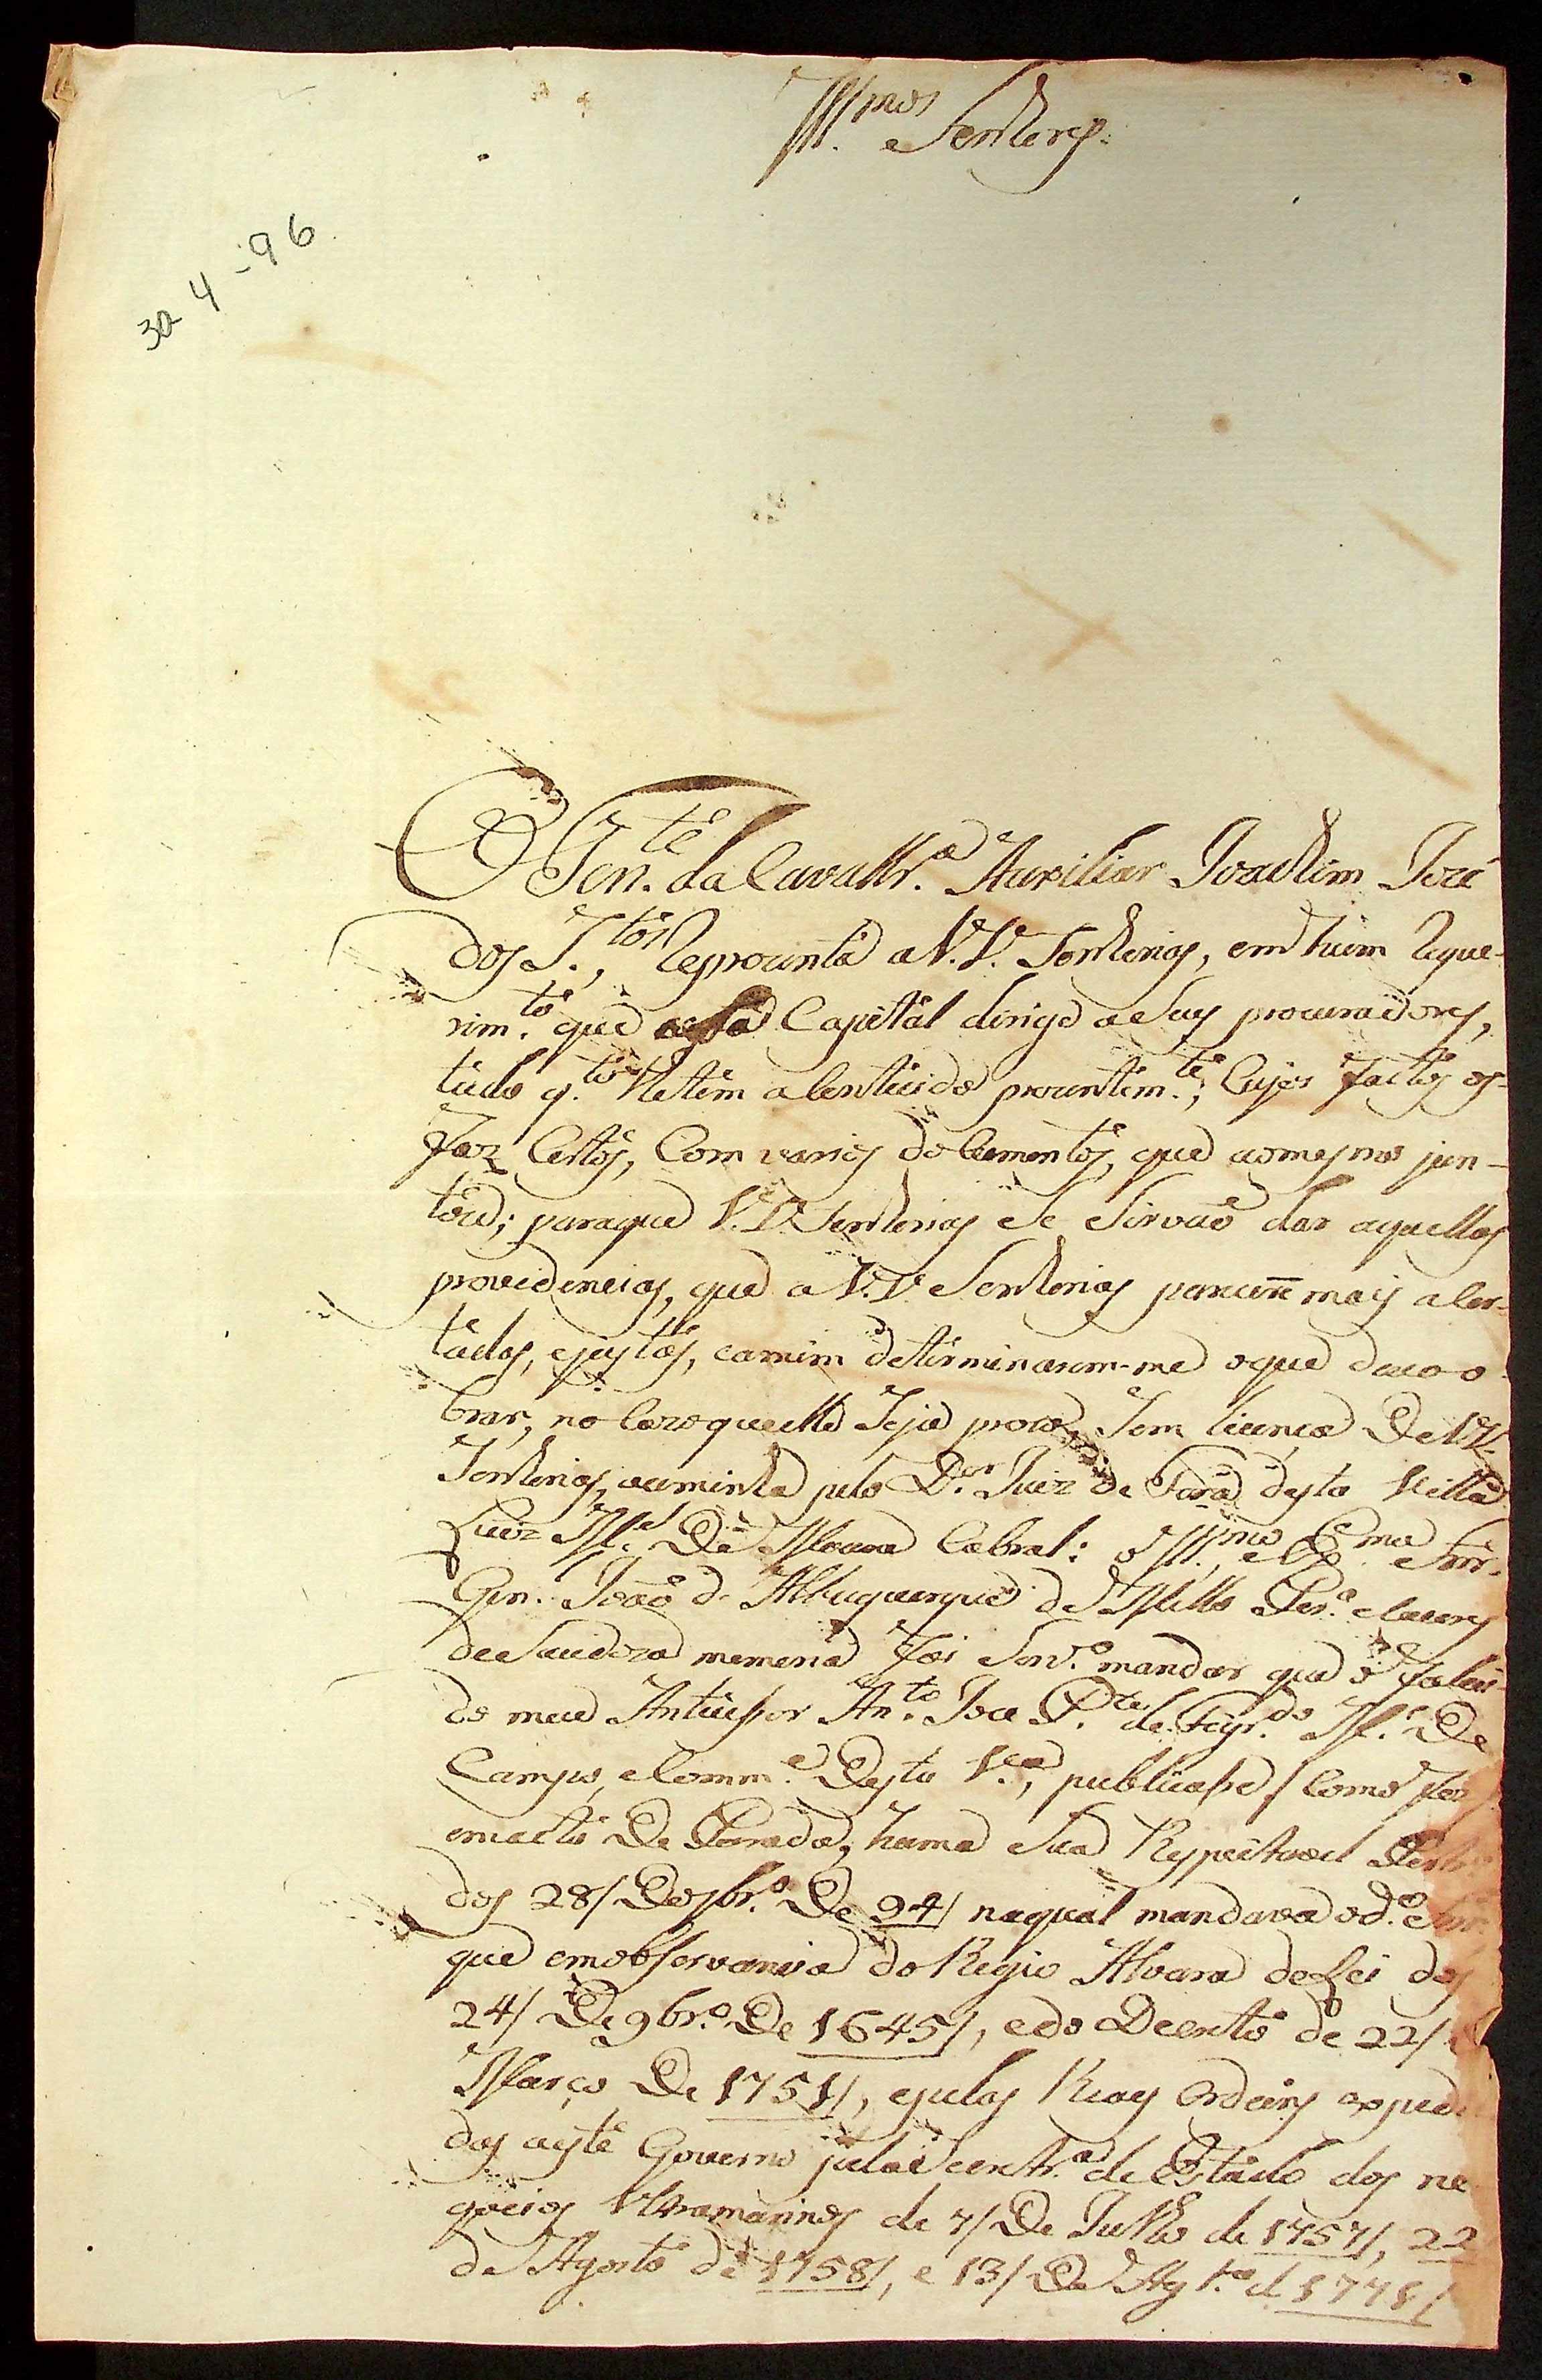 Ill.mos Senhores.
30-4-96
O Ten.te da Cavallr.a Auxiliar Joachim Joze
dos S.tos, Reprezenta a V.V. Senhorias, em hum Reque-
rim.to que a essa Capital dirige a Seus procuradores,
tudo q.to lhe tem acontecido prezentem.te, Cujos Factos os
Faz Certos, Com varios doCumentos, que ao mesmo jun-
tou; para que V.V. Senhorias Se Sirvaõ dar aquellas
providencias, que a V.V. Senhorias parecerẽ mais acer-
tadas, e justas, e a mim detirminarem-me o que devo o-
brar, no Cazo que elle Seja prezo, Sem licença De V.V.
Senhorias, ou minha pelo D.or Juiz de Fora desta Villa
Luiz M.el De Moura Cabral: o Ill.mo e Ex.mo Snr.
Gen. Joaõ d'Albuquerque de Mello Per.a e Caceres
de Saudoza memoria Foi Serv.o mandar que o Faleci-
do meu Anticessor Ant.o Joze P.to de Figr.do M.e De
Campo, e Comm.e Desta V.a, publicasse / Como Fez /
em acto De Parada, huma Sua Respeitavel
dos 28/ De 8br.o De 94/ na qual mandava o d.o Snr.
que em observancia do Regio Alvara de Lei dos
24/ De 9br.o De 1645/, e do Decreto de 22/
Março De 1751/, e pelas Reaes Ordeins expedi
das a este Governo pela Secretr.a de Estado dos ne
gocios Ultramarinos de 7/ De Julho de 1757/, 22
de Agosto de 1758/, e 13/ De Ag.to d